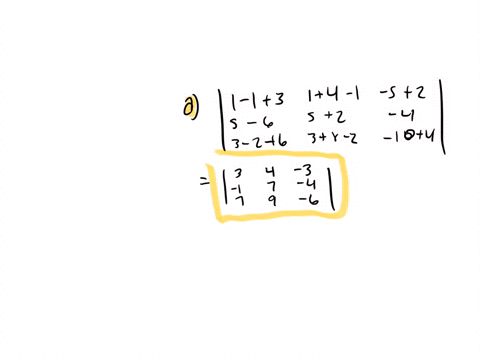 a) | 1-1+3 1+4-1 -5+2 |
| 5-6 5+2 -4 |
| 3-2+6 3+8-2 -10+4 |
= | 3 4 -3 |
| -1 7 -4 |
| 7 9 -6 |